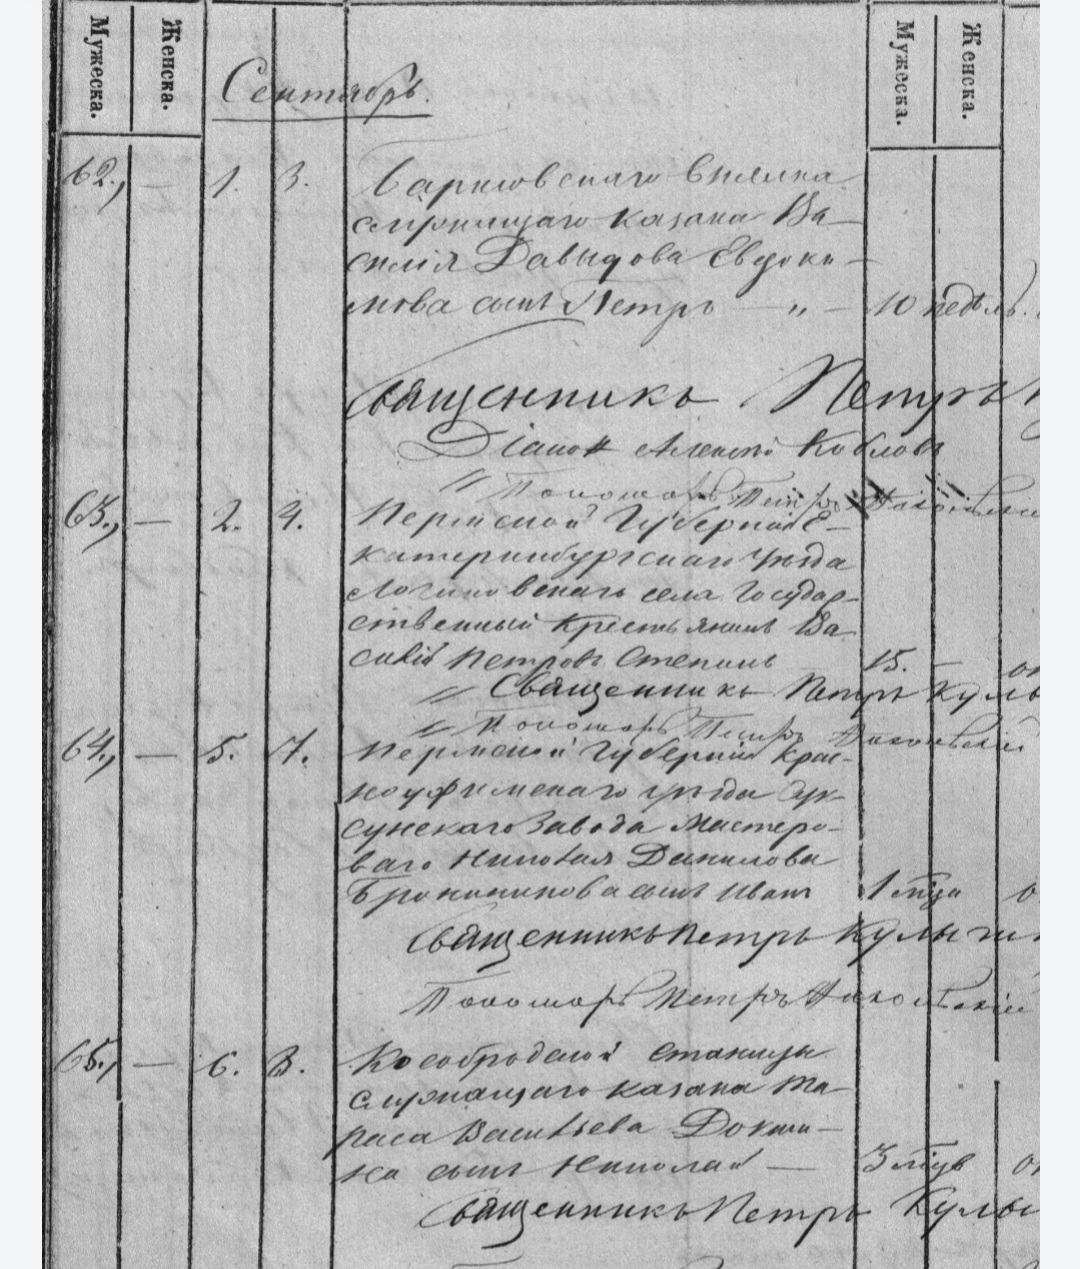 Мужеска.
Женска.
Мужеска.
Женска.
Сентябрь.
62., — 1. 3. выселка
служащаго казака Ва
силія Давыдова Евдоки–
мова сынъ Петръ — „ — 10 недѣль.
Священникъ Петръ
Діаконъ Алексѣй Кобловъ
〃 Пономарь Петръ
63., — 2. 4. Пермской Губерніи Е–
катеринбургскаго уѣзда
Логиновскаго села Государ–
ственный крестьянинъ Ва
силій Петровъ Степинъ 15. —
〃 Священникъ Петръ
〃 Пономарь Петръ
64., — 5. 7. Пермской Губерніи Крас–
ноуфимскаго уѣзда Сук–
сунскаго Завода Мастеро–
ваго Николая Данилова
сынъ Иванъ 1 мѣца
Священникъ Петръ
Пономарь Петръ
65., — 6. 8. Кособродской станицы
служащаго казака Та–
раса Васильева Докши–
на сынъ Николай — 3 мѣцв
Священникъ Петръ